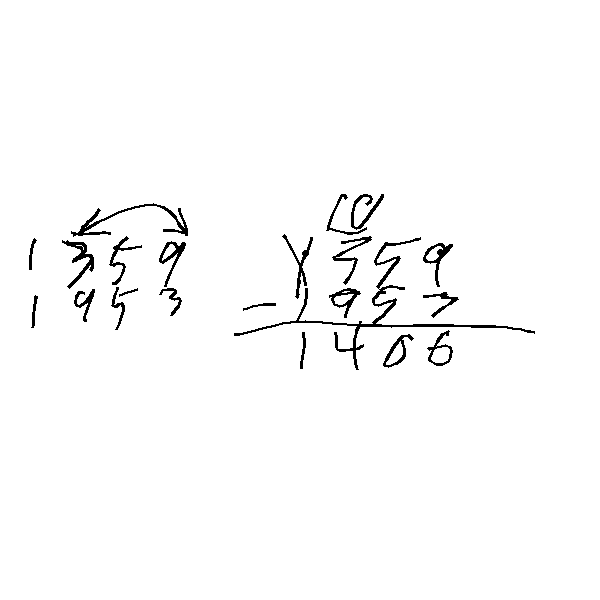 1359
1953
10
1359
- 1953
1406